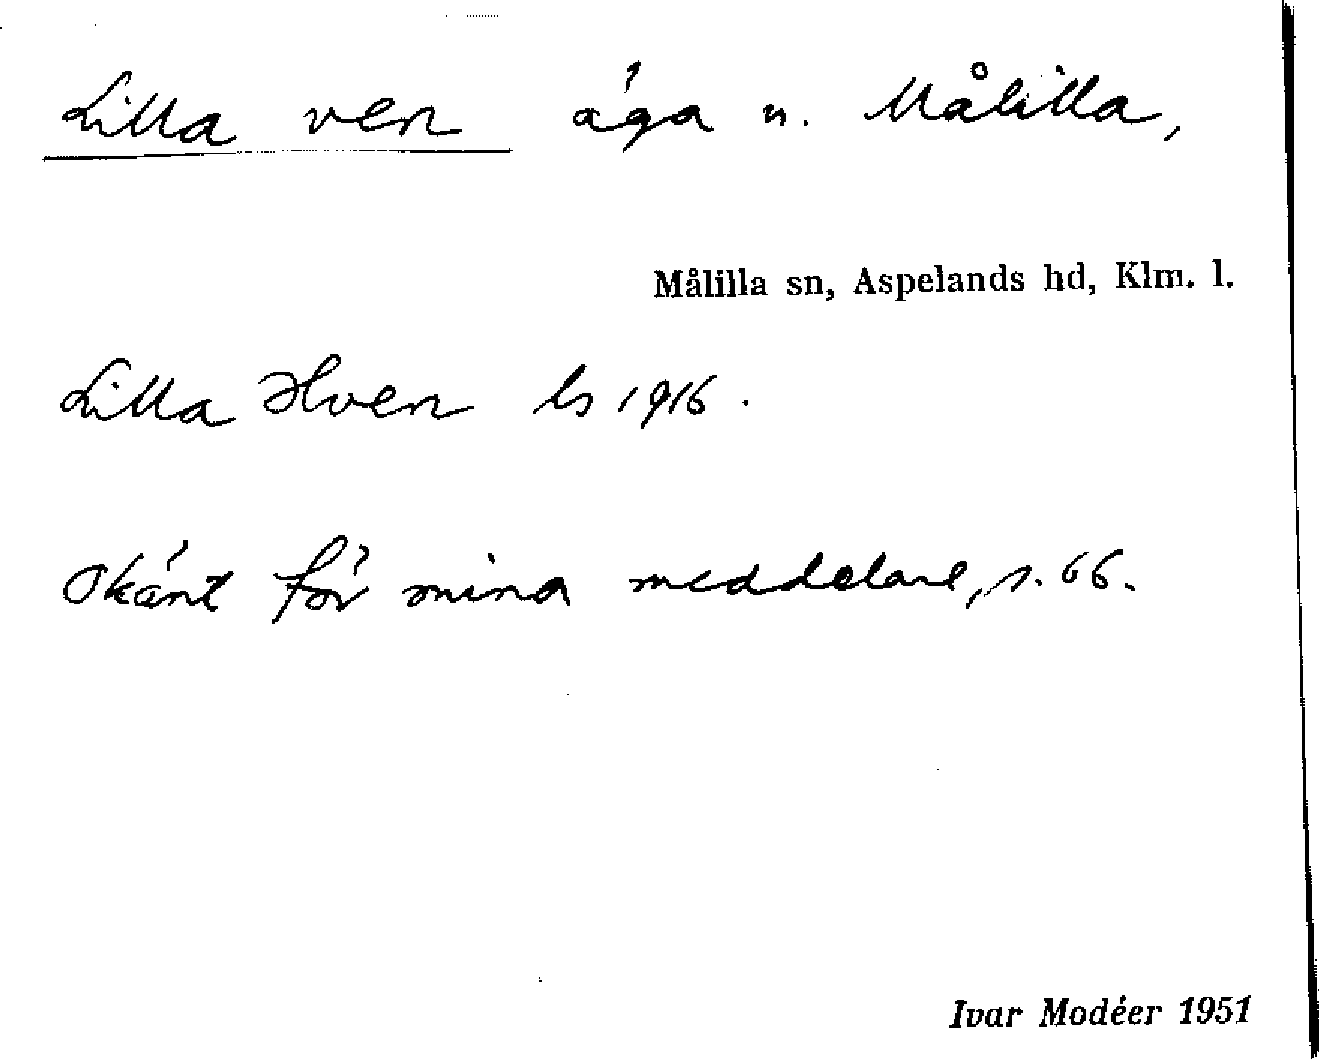 Lilla ven äga u. Målilla,
Målilla sn, Aspelands hd, Klm. l.
Lilla Hven ls 1916.
Okänt för mina meddelare, s. 66.
Ivar Modéer 1951